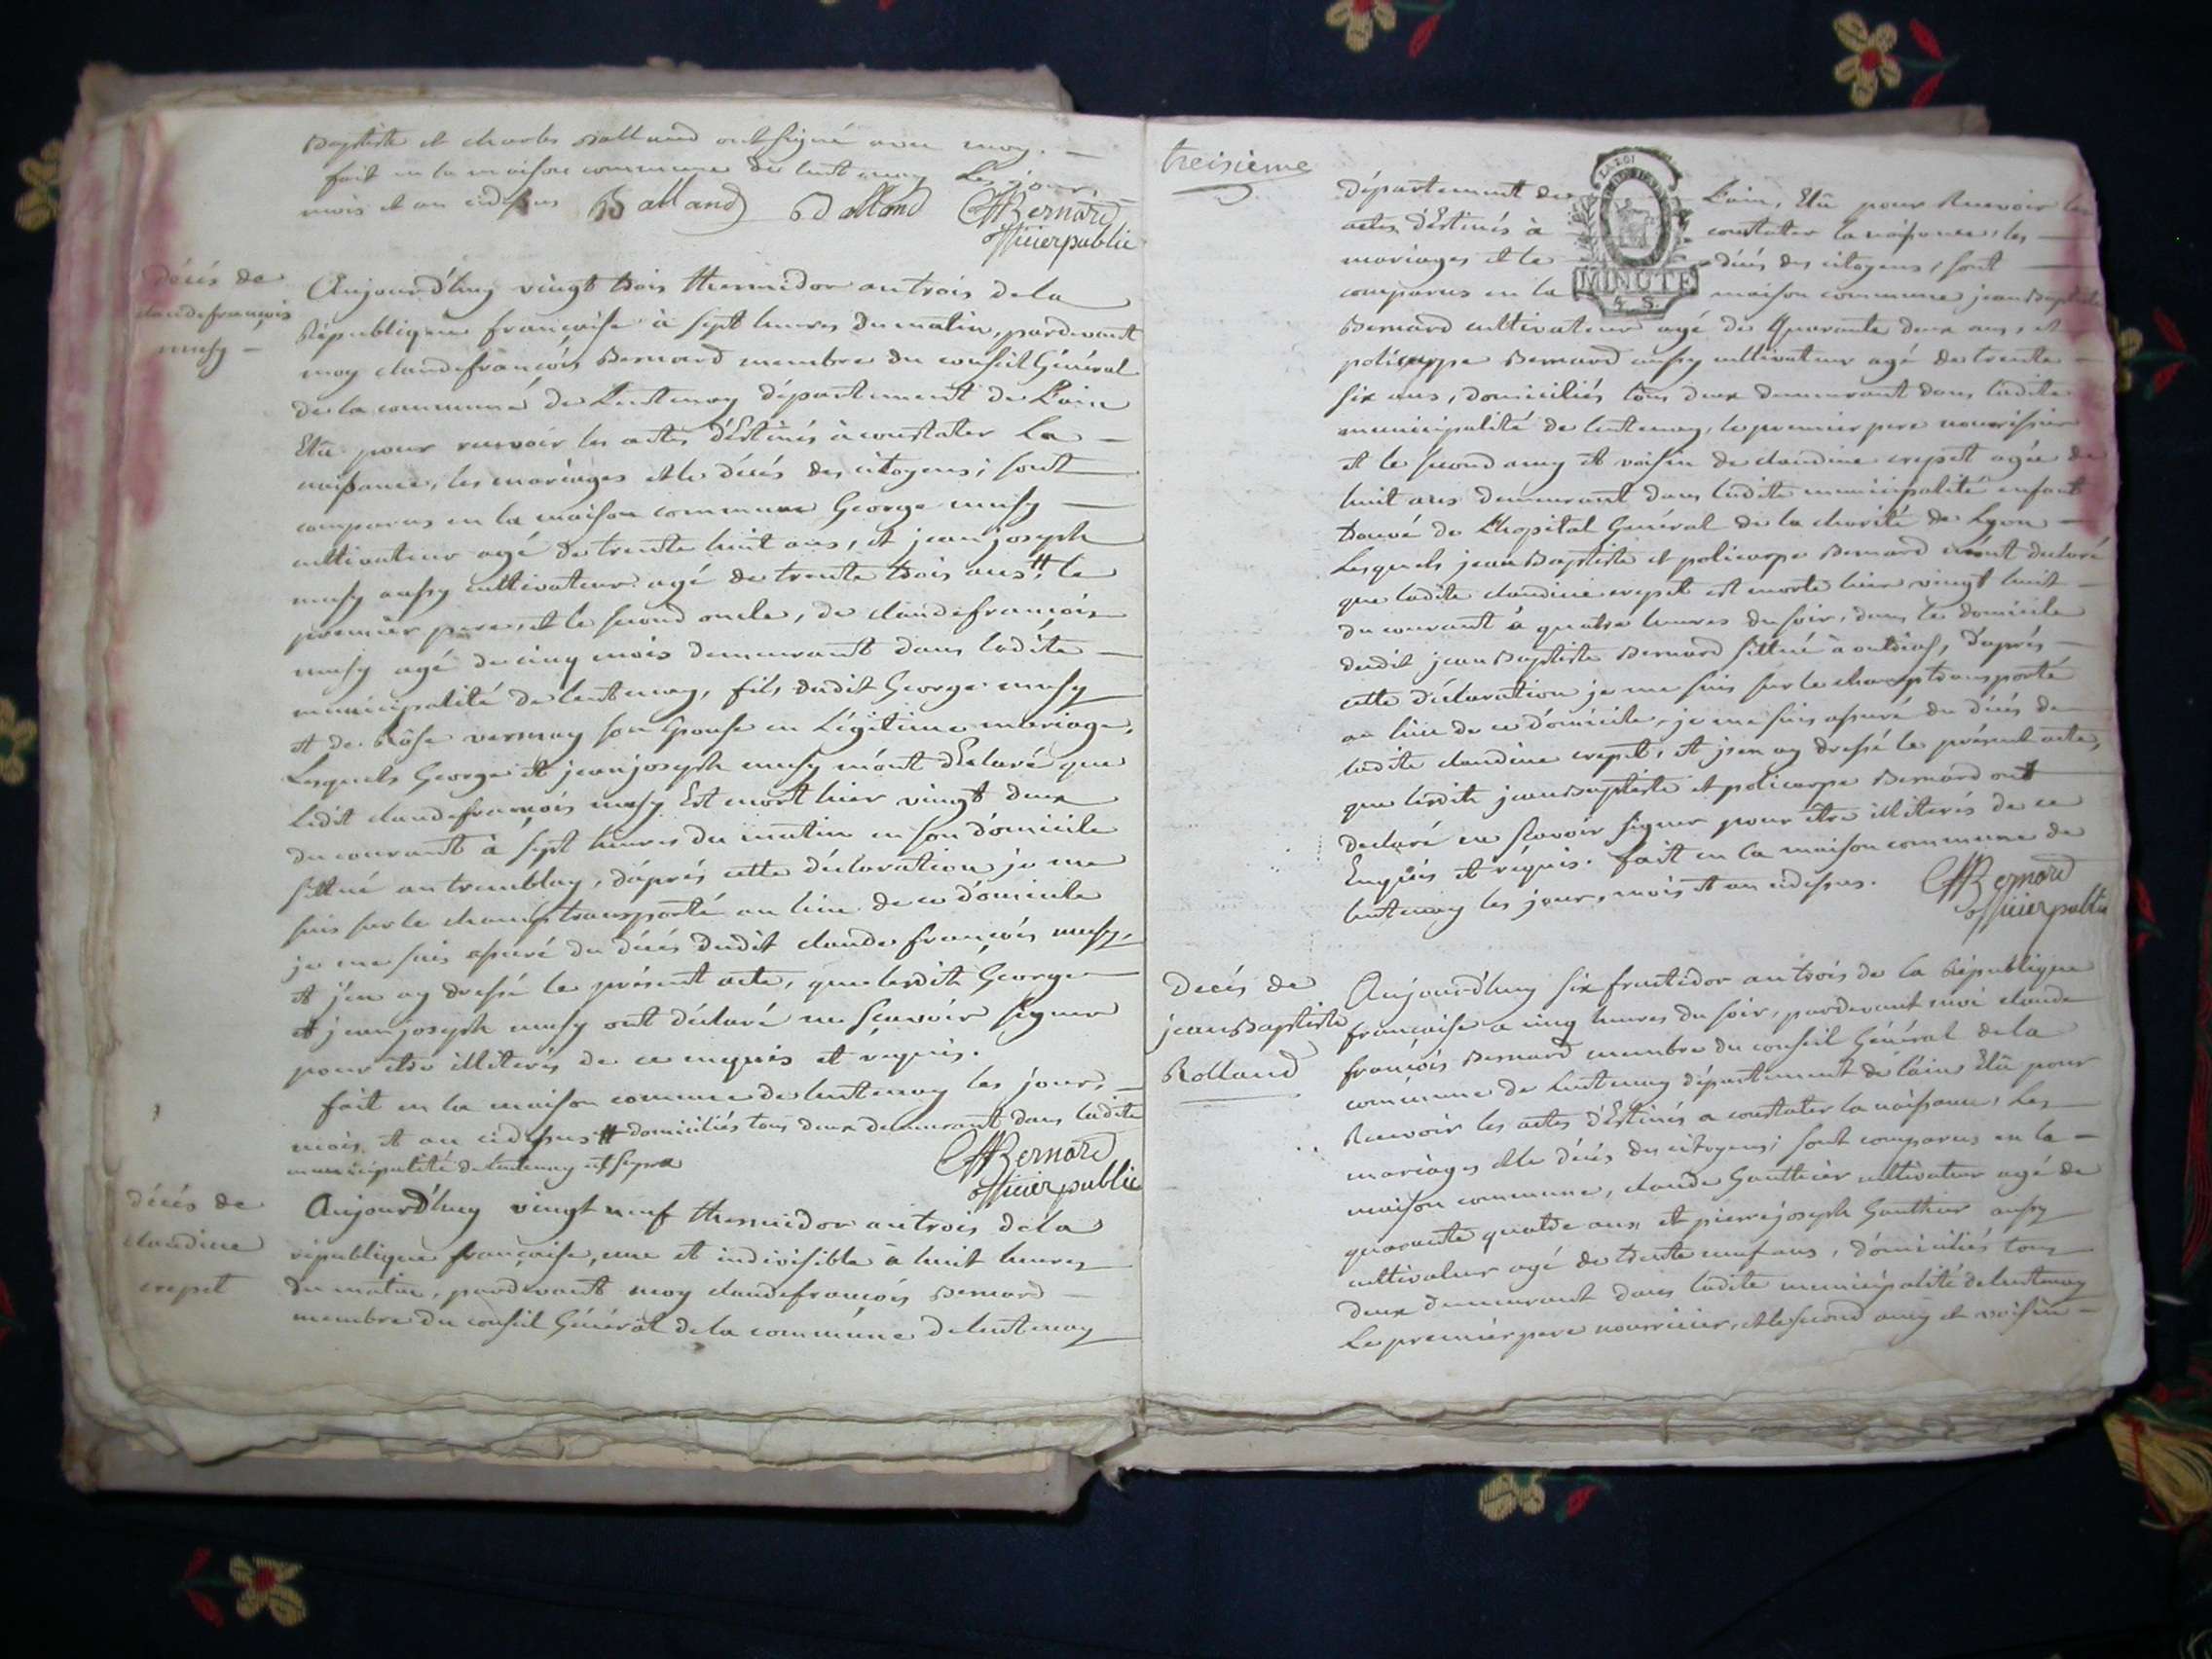 Baptiste et charles Balland ont signé avec moy. —
fait en la maison commune de lentenay les jour,
mois et an cidessus Balland Balland CfBernard
officier public
décés de
claudefrançois
musy —
Aujourd'huy vingt trois thermidor an trois de la
République française à sept heures du matin, pardevant
moy claudefrançois Bernard membre du conseil Général
de la commune de Lentenay département de L'ain
Elû pour recevoir les actes d'Estinés à constater La —
naissance, les mariages et le décés des citoyens; sont
comparus en la maison commune George musy —
cultivateur agé de trente huit ans, et jean joseph
musy aussy cultivateur agé de trente trois ans # le
premier pere, et le second oncle, de claudefrançois
musy agé de cinq mois demeurant dans ladite —
municipalité de lentenay, fils dudit George musy
et de Rôse vermay son Epouse en Légitime mariage,
Lesquels George et jean joseph musy m'ont déclaré que
Ledit claudefrançois musy Est mort hier vingt deux
du courant à sept heures du matin en son domicile
sittué au tremblay, d'aprés cette déclaration je me
suis sur le champ transporté au lieu de ce domicile
je me suis assuré du décés dudit claude françois musy,
et j'en ay dressé le présent acte, que lesdits George
et jean joseph musy ont déclaré ne sçavoir signer
pour etre illiterés de ce enquis et réquis.
fait en la maison commune de lentenay les jour,
mois et an cidessus # domiciliés tous deux demeurant dans ladite
municipalité de lentenay ut supra
CfBernard
officier public
décés de
claudine
crepet
Aujourd'huy vingt neuf thermidor an trois de la
république française, une et indivisible à huit heures
du matin, pardevant moy claudefrançois Bernard —
membre du conseil Général de la commune de lentenay
treisieme
LA LOI
MINUTE
4 S.
département de L'ain, Elû pour Recevoir les
actes d'Estinés à constater la naissance, les —
mariages et le décés des citoyens, sont —
comparus en la maison commune jean Baptiste
Bernard cultivateur agé de Quarante deux ans, et
policarpe Bernard aussy cultivateur agé de trente —
six ans, domiciliés tous deux demeurant dans ladite
municipalité de lentenay, le premier pere nourrissier
et le second amy et voisin de claudine crepet agée de
huit ans demeurant dans ladite municipalité enfant
trouvé de L'hopital Général de la charité de Lyon —
Lesquels jean Baptiste et policarpe Bernard m'ont declaré
que ladite claudine crepet est morte hier vingt huit —
du courant à quatre heures du soir, dans le domicile
dudit jean Baptiste Bernard sittué à outriaz, d'aprés —
cette déclaration je me suis sur le champ transporté
au lieu de ce domicile, je me suis assuré du décés de
ladite claudine crepet, et j'en ay dressé le présent acte,
que lesdits jean Baptiste et policarpe Bernard ont
declaré ne sçavoir signer pour être illiterés de ce
Enquis et réquis. fait en la maison commune de
lentenay les jour, mois et an cidessus. CfBernard
officier public
Decés de
jean Baptiste
Rolland
Aujourd'huy six fructidor an trois de la République
française a cinq heures du soir, pardevant moi claude
françois Bernard membre du conseil Général de la
commune de Lentenay département de l'ain Elû pour
Recevoir les actes d'Estinés a constater la naissance, Les
mariages et le décés des citoyens; sont comparus en la —
maison commune, claude Gauthier cultivateur agé de
quarante quatre ans et pierre joseph Gauthier aussy
cultivateur agé de trente neuf ans, domiciliés tous
deux demeurant dans ladite municipalité de lentenay
Le premier pere nourricier, et le second amy et voisin —